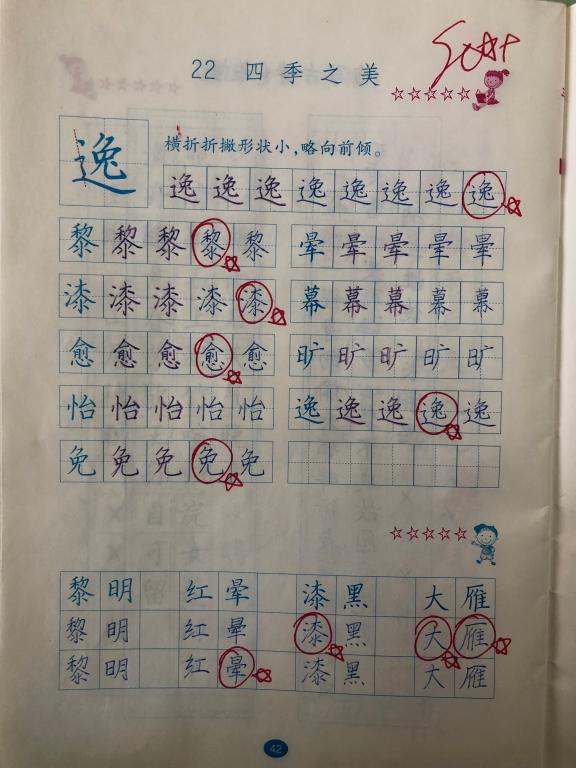 22 四季之美
5☆+
☆☆☆☆☆
逸
横折折撇形状小,略向前倾。
逸逸逸逸逸逸逸逸
黎黎黎黎黎 晕晕晕晕晕
漆漆漆漆漆 幕幕幕幕幕
愈愈愈愈愈 旷旷旷旷旷
怡怡怡怡怡 逸逸逸逸逸
免免免免免
☆☆☆☆☆
黎明 红晕 漆黑 大雁
黎明 红晕 漆黑 大雁
黎明 红晕 漆黑 大雁
42